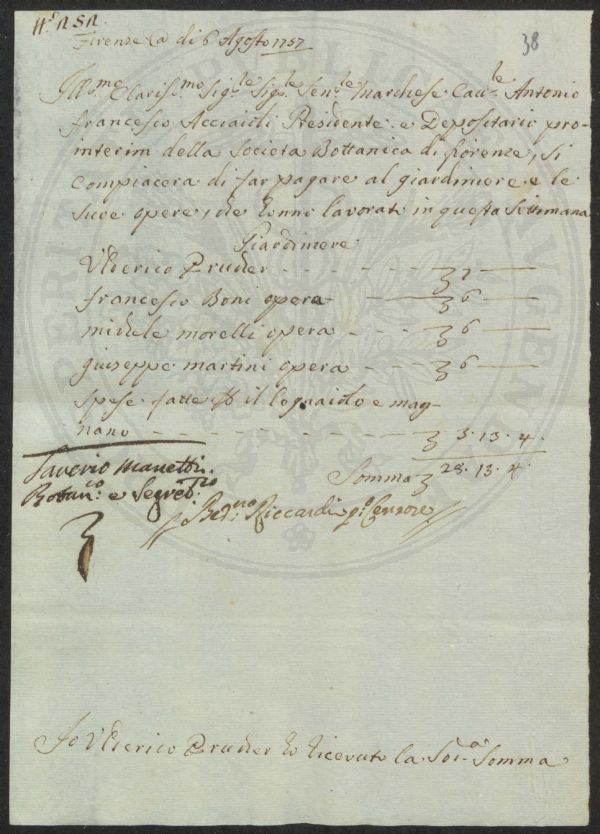 38
Firenze a di 6 Agosto 1757
Ill.mo Clariss.mo Sig.le Sig.le Sen.le Marchese Cau.le Antonio
francesco Acciaioli Presidente e Depositario pro-
interim della Societa Bottanica di fiorenze, si
Compiacera di far pagare al giardiniere e le
sue opere, che hanno lavorato in questa Settimana
Giardiniere
Vlderico Pruder - - - - - - 7 —
francesco Boni opera — 6 —
michele morelli opera - - - 6 —
giuseppe martini opera - - - 6 —
Spese fatte il legnaiolo e mag-
nano - - - - - - - 3. 13. 4.
Somma 28. 13. 4.
Saverio Manetti
Botan.co e Segret.rio
Riccardi p.o Censore
Io Vlderico Pruder ho riceuuto la Sod.a Somma